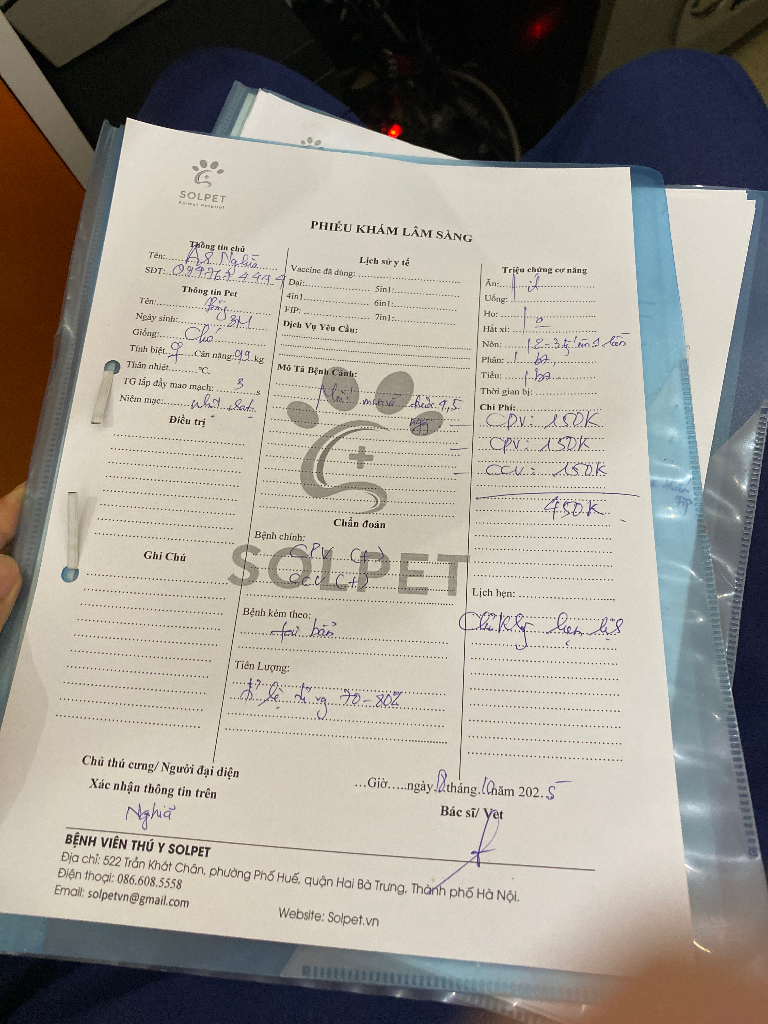 SOLPET
Animal Hospital
PHIẾU KHÁM LÂM SÀNG
Thông tin chủ
Tên: A8 Nghĩa
SĐT:
Thông tin Pet
Tên:
Ngày sinh: 3M
Giống: Chó
Tính biệt: ♀ Cân nặng: 99 kg
Thân nhiệt °C.
TG lấp đầy mao mạch: 3 s
Niêm mạc: nhợt
Điều trị
Ghi Chú
Lịch sử y tế
Vaccine đã dùng:
Dại: 5in1:
4in1 6in1:
FIP: 7in1:
Dịch Vụ Yêu Cầu:
Mô Tả Bệnh Cảnh:
4,5
ngày
Chẩn đoán
Bệnh chính:
CPV (+)
CCV (+)
SOLPET
Bệnh kèm theo:
Tiên Lượng:
tỉ lệ 70-80%
Triệu chứng cơ năng
Ăn: ít
Uống:
Ho:
Hắt xì:
Nôn: 2-3 lần
Phân: bt
Tiểu: bt
Thời gian bị:
Chi Phí:
CDV: 150K
CPV: 150K
CCV: 150K
450K
Lịch hẹn:
Chủ
Chủ thú cưng/ Người đại diện
Xác nhận thông tin trên
Nghĩa
...Giờ.....ngày tháng 10 năm 2025
Bác sĩ/ Vet
BỆNH VIỆN THÚ Y SOLPET
Địa chỉ: 522 Trần Khát Chân, phường Phố Huế, quận Hai Bà Trưng, Thành phố Hà Nội.
Điện thoại: 086.608.5558
Email: solpetvn@gmail.com
Website: Solpet.vn